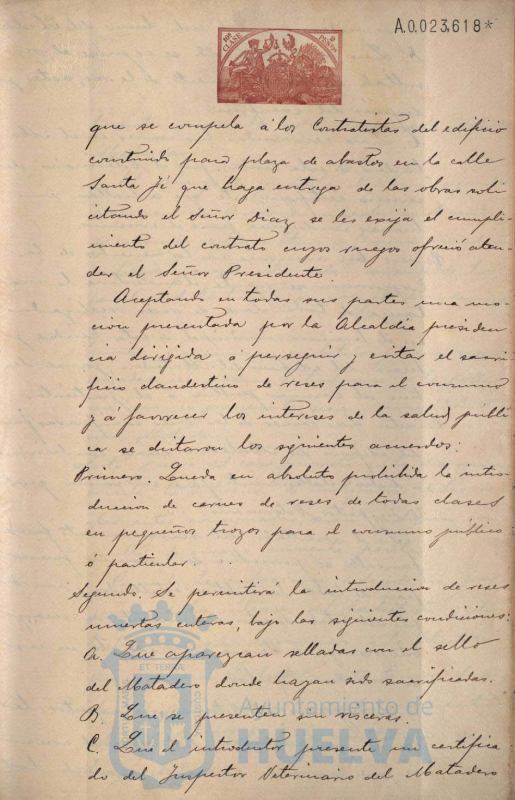 A.0.023,618*
10ª CLASE
2 PESETAS
que se compela á los Contratistas del edificio
construido para plaza de abastos en la calle
Santa Fé que haga entrega de las obras soli
citando el Señor Diaz se les exija el cumpli
miento del contrato cuyos ruegos ofreció aten
der el Señor Presidente.
Aceptando en todas sus partes una mo
cion presentada por la Alcaldia presiden
cia dirigida á perseguir y evitar el sacri
ficio clandestino de reses para el consumo
y á favorecer los intereses de la salud públi
ca se dictaron los siguientes acuerdos:
Primero. Queda en absoluto prohibida la intro
duccion de carnes de reses de todas clases
en pequeños trozos para el consumo público
ó particular.
Segundo. Se permitirá la introduccion de reses
muertas enteras, bajo las siguientes condiciones:
A. Que aparezcan selladas con el sello
del Matadero donde hayan sido sacrificadas.
B. Que se presenten sin visceras.
C. Que el introductor presente un certifica
do del Inspector Veterinario del Matadero
ET TERRA
Ayuntamiento de
HUELVA